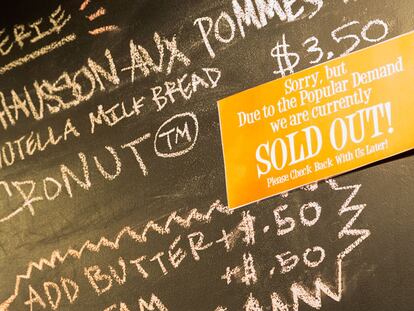 ERIE
HAUSSON AUX POMMES
$3.50
NUTELLA MILK BREAD
CRONUT TM
Sorry, but
Due to the Popular Demand
we are currently
SOLD OUT!
Please Check Back With Us Later!
ADD BUTTER +$.50
+$.50